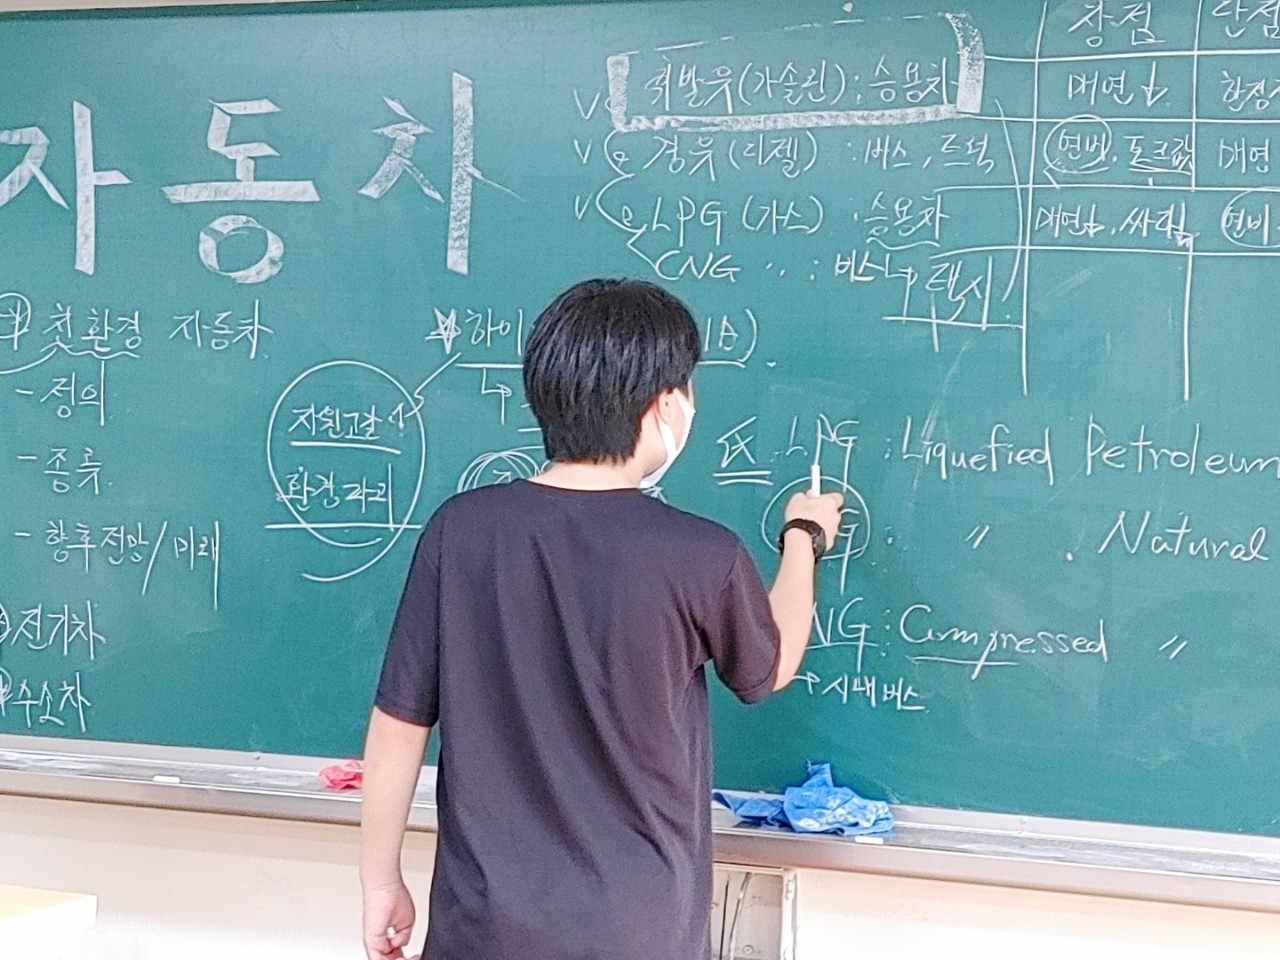 자동차
친환경 자동차
- 정의
- 종류
- 향후전망/미래
전기차
수소차
자원고갈
환경파괴
하이
휘발유(가솔린) : 승용차
V 경유(디젤) : 버스, 트럭
V LPG (가스) : 승용차
CNG 〃 : 버스 → 택시
장점 단점
매연↓
연비, 토크값 매연
매연↓, 싸다 연비
LPG : Liquefied Petroleum
〃 . Natural
NG : Compressed 〃
→ 시내버스